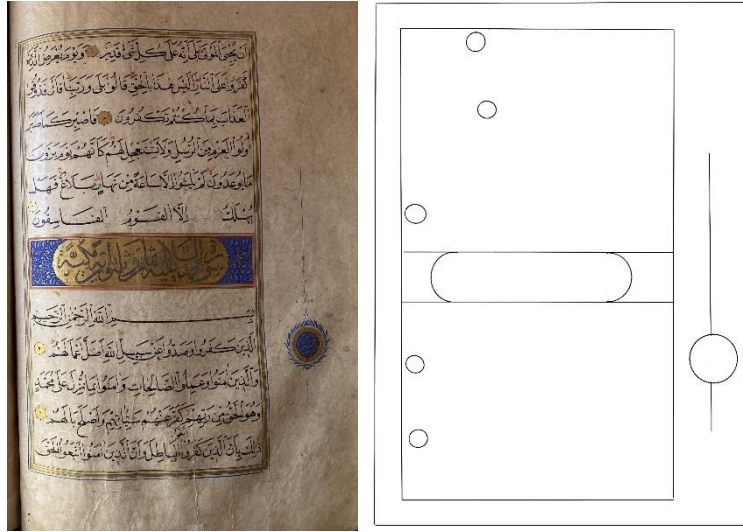 أن يحيي الموتى بلى إنه على كل شيء قدير ويوم يعرض الذين
كفروا على النار أليس هذا بالحق قالوا بلى وربنا قال فذوقوا
العذاب بما كنتم تكفرون فاصبر كما صبر
أولوا العزم من الرسل ولا تستعجل لهم كأنهم يوم يرون
ما يوعدون لم يلبثوا إلا ساعة من نهار بلاغ فهل
يهلك إلا القوم الفاسقون
سورة محمد
بسم الله الرحمن الرحيم
الذين كفروا وصدوا عن سبيل الله أضل أعمالهم
والذين آمنوا وعملوا الصالحات وآمنوا بما نزل على محمد
وهو الحق من ربهم كفر عنهم سيئاتهم وأصلح بالهم
ذلك بأن الذين كفروا اتبعوا الباطل وأن الذين آمنوا اتبعوا الحق